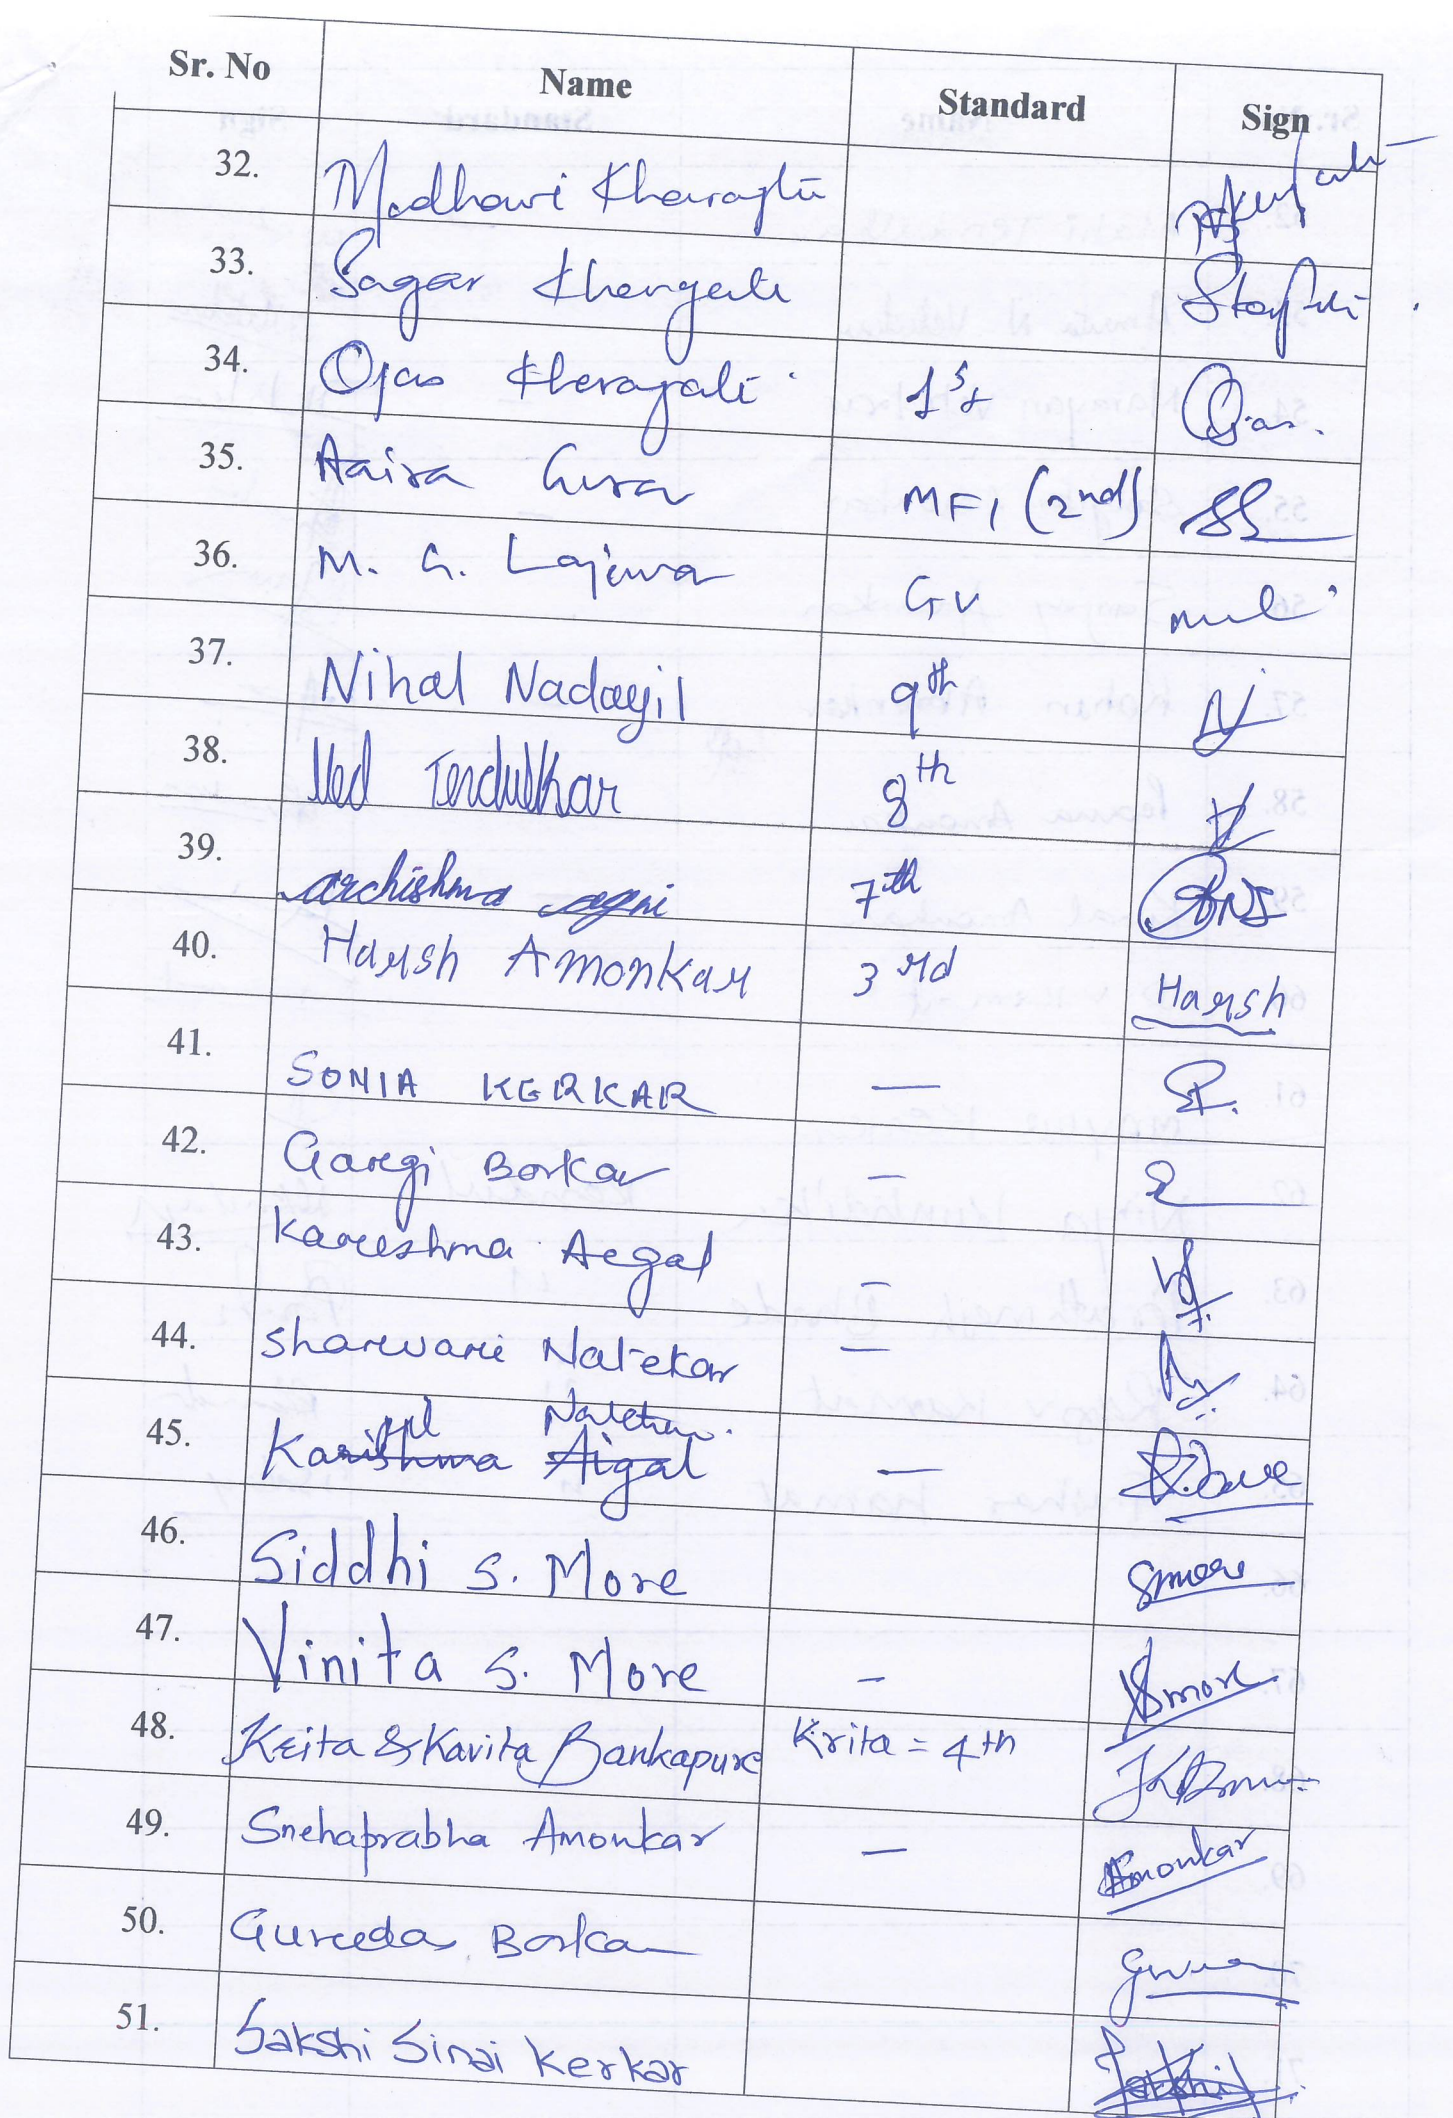 Sr. No Name Standard Sign
32. Madhavi
33. Sagar
34. Ojas 1st Ojas.
35. Aaira MFI (2nd)
36. M. G. GV
37. Nihal Nadagil 9th N
38. Ved Tendulkar 8th V
39. archishma agni 7th
40. Harsh Amonkar 3rd Harsh
41. SONIA KERKAR —
42. Gargi Borkar —
43. Kareshma Aegal —
44. Sharwari Natekar —
45. Natekar.
Karishma Aigal —
46. Siddhi S. More Smore
47. Vinita S. More - VSmore
48. Krita & Kavita Bankapure Krita = 4th
49. Snehaprabha Amonkar — Amonkar
50. Borkar
51. Sakshi Sinai Kerkar Sakshi